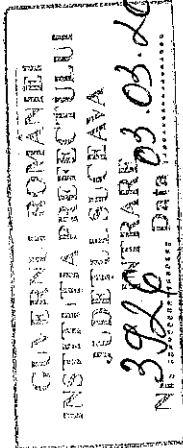 GUVERNUL ROMÂNIEI
INSTITUȚIA PREFECTULUI
JUDEȚUL SUCEAVA
INTRARE
Nr. 3926 Data 03.03.20